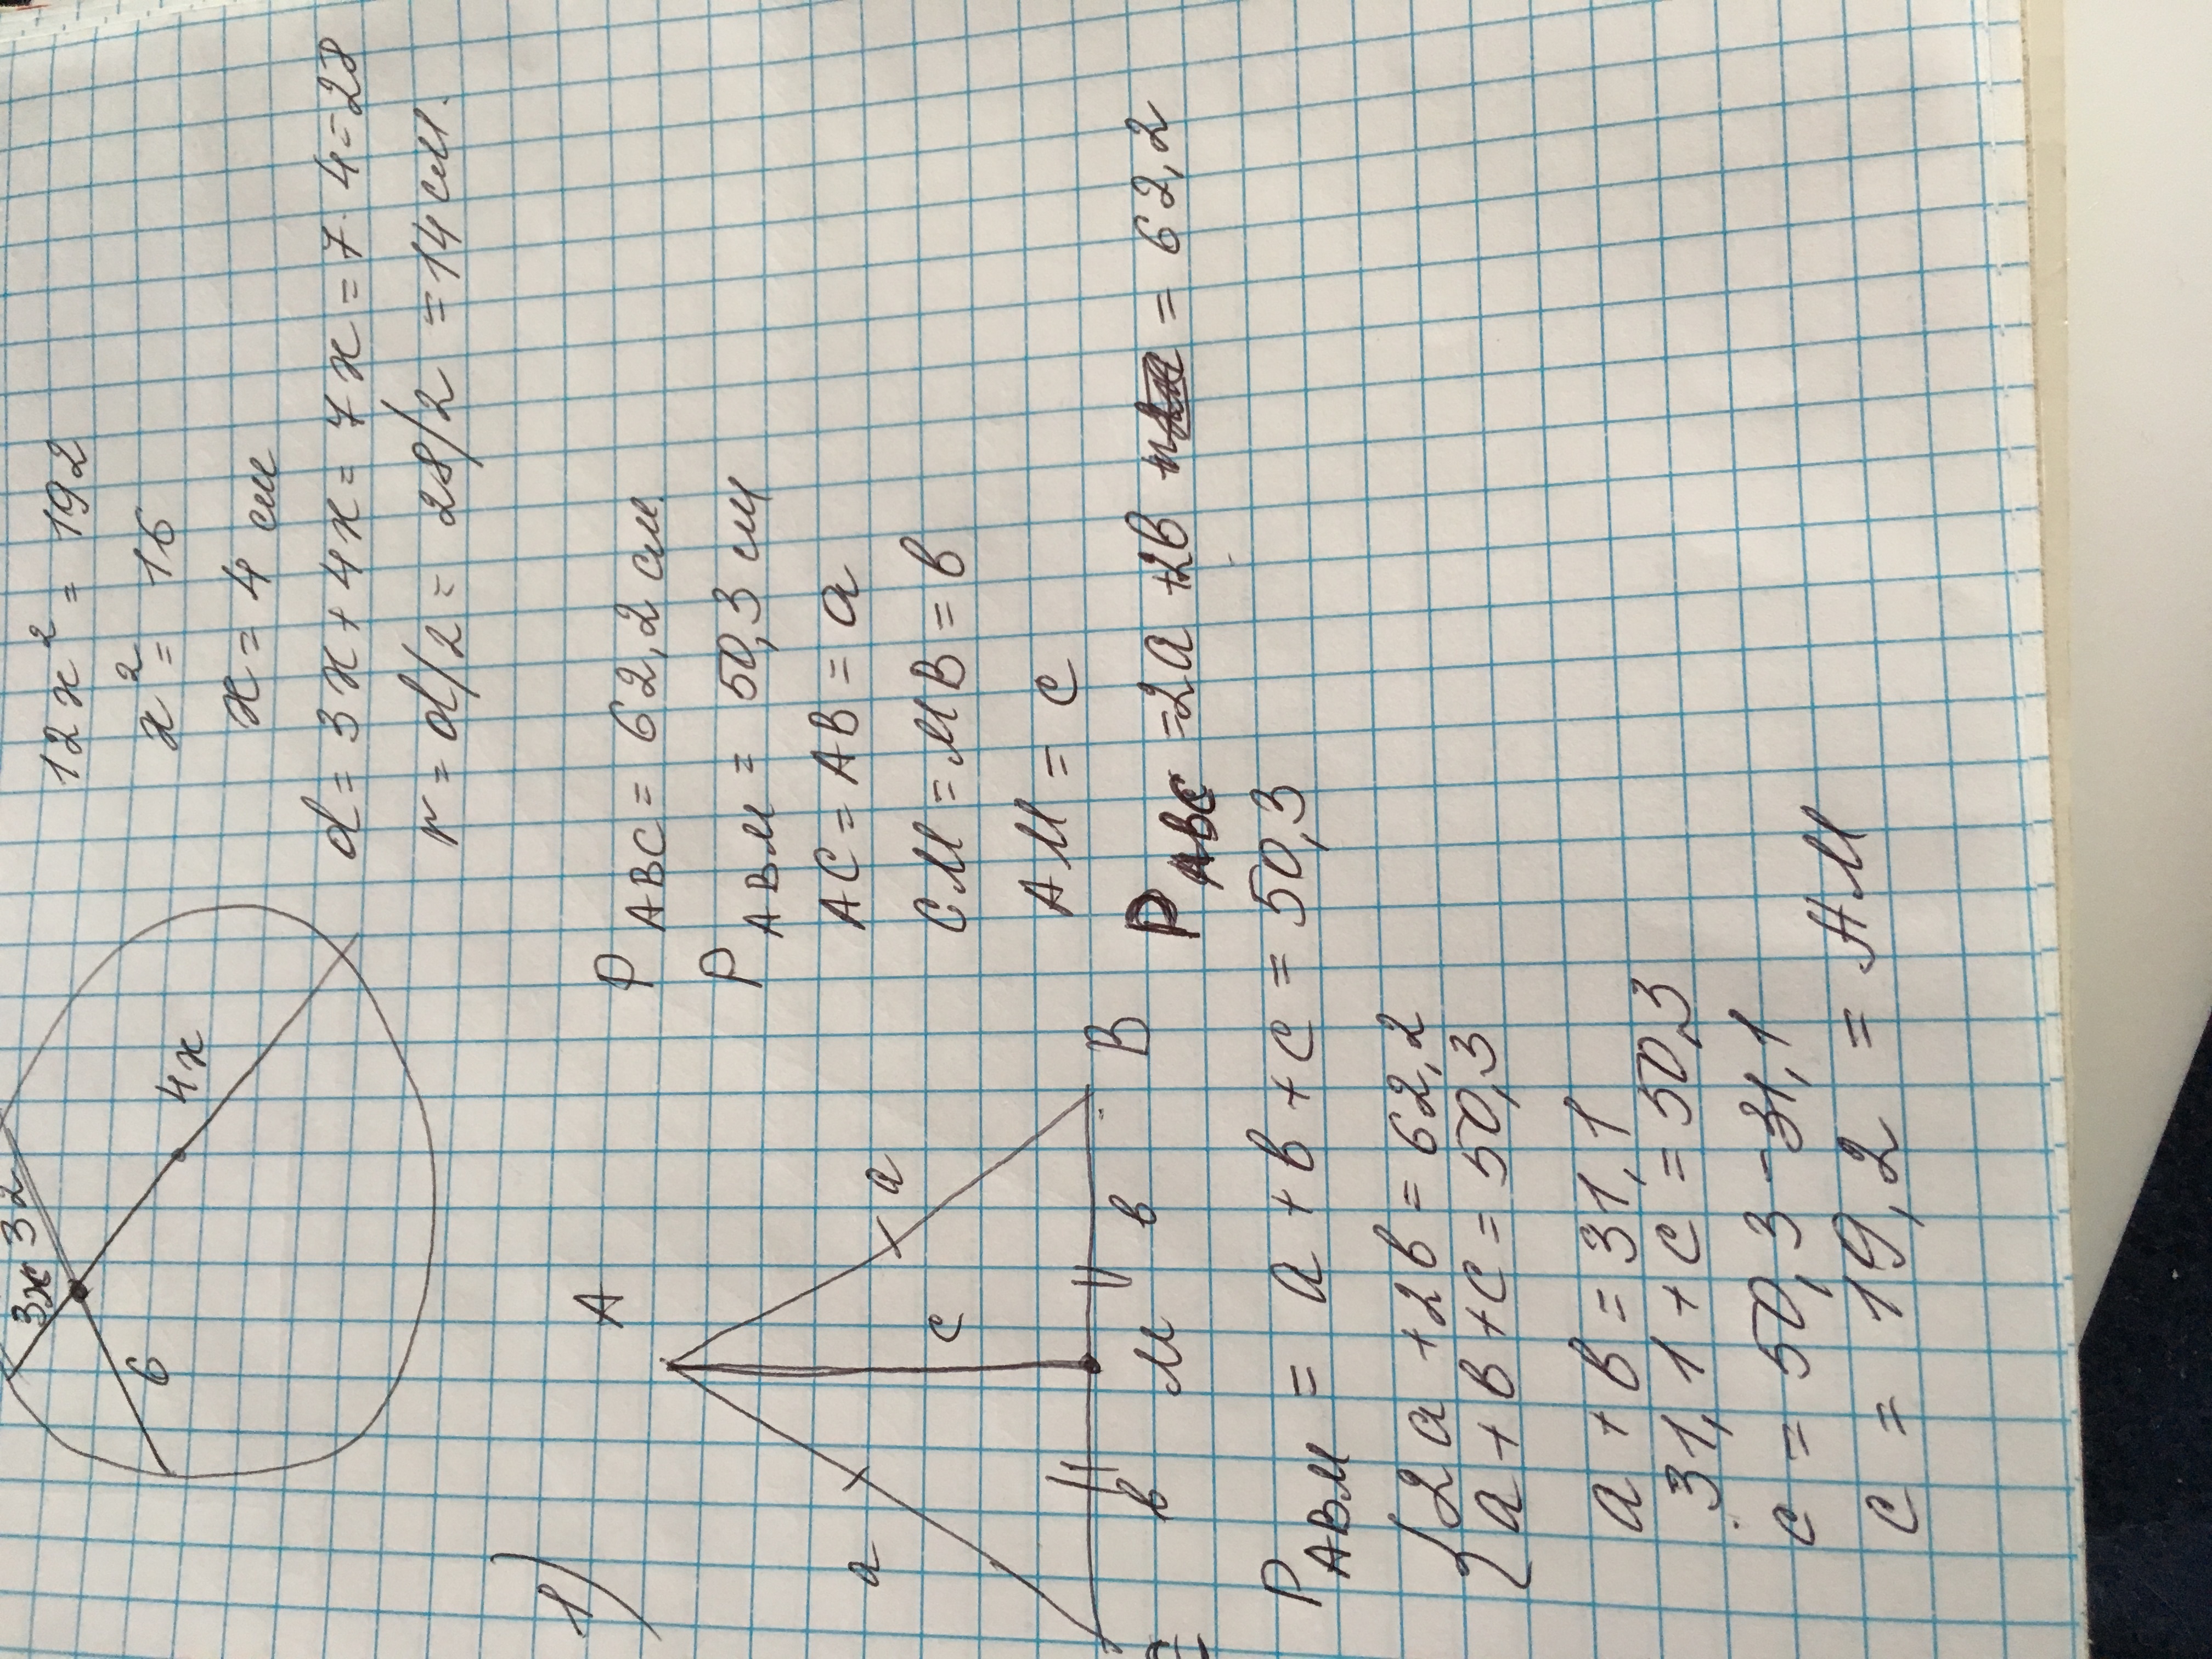 12x² = 192
x² = 16
x = 4 см
d = 3x + 4x = 7x = 7·4 = 28
r = d/2 = 28/2 = 14 см.
3x
32
4x
6
1)
A
a
a
c
в
M
в
B
P ABC = 62,2 см.
P ABM = 50,3 см
AC = AB = a
CM = MB = в
AM = c
P ABC = 2a + 2в = 62,2
P ABM = a + в + c = 50,3
{ 2a + 2в = 62,2
a + в + c = 50,3
a + в = 31,1
31,1 + c = 50,3
c = 50,3 - 31,1
c = 19,2 = AM